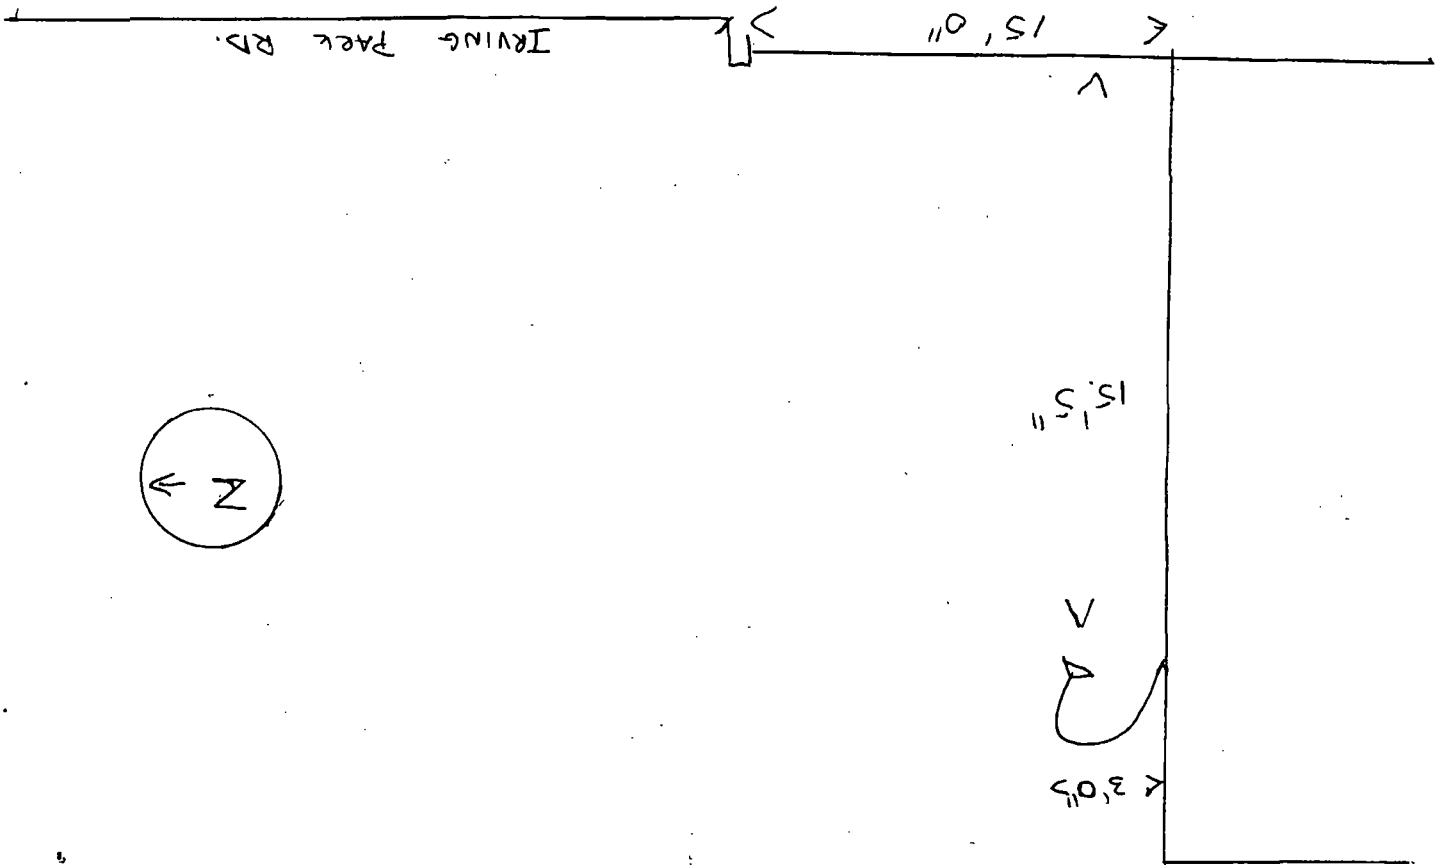 3'0"
N
15'5"
15' 0"
IRVING PARK RD.